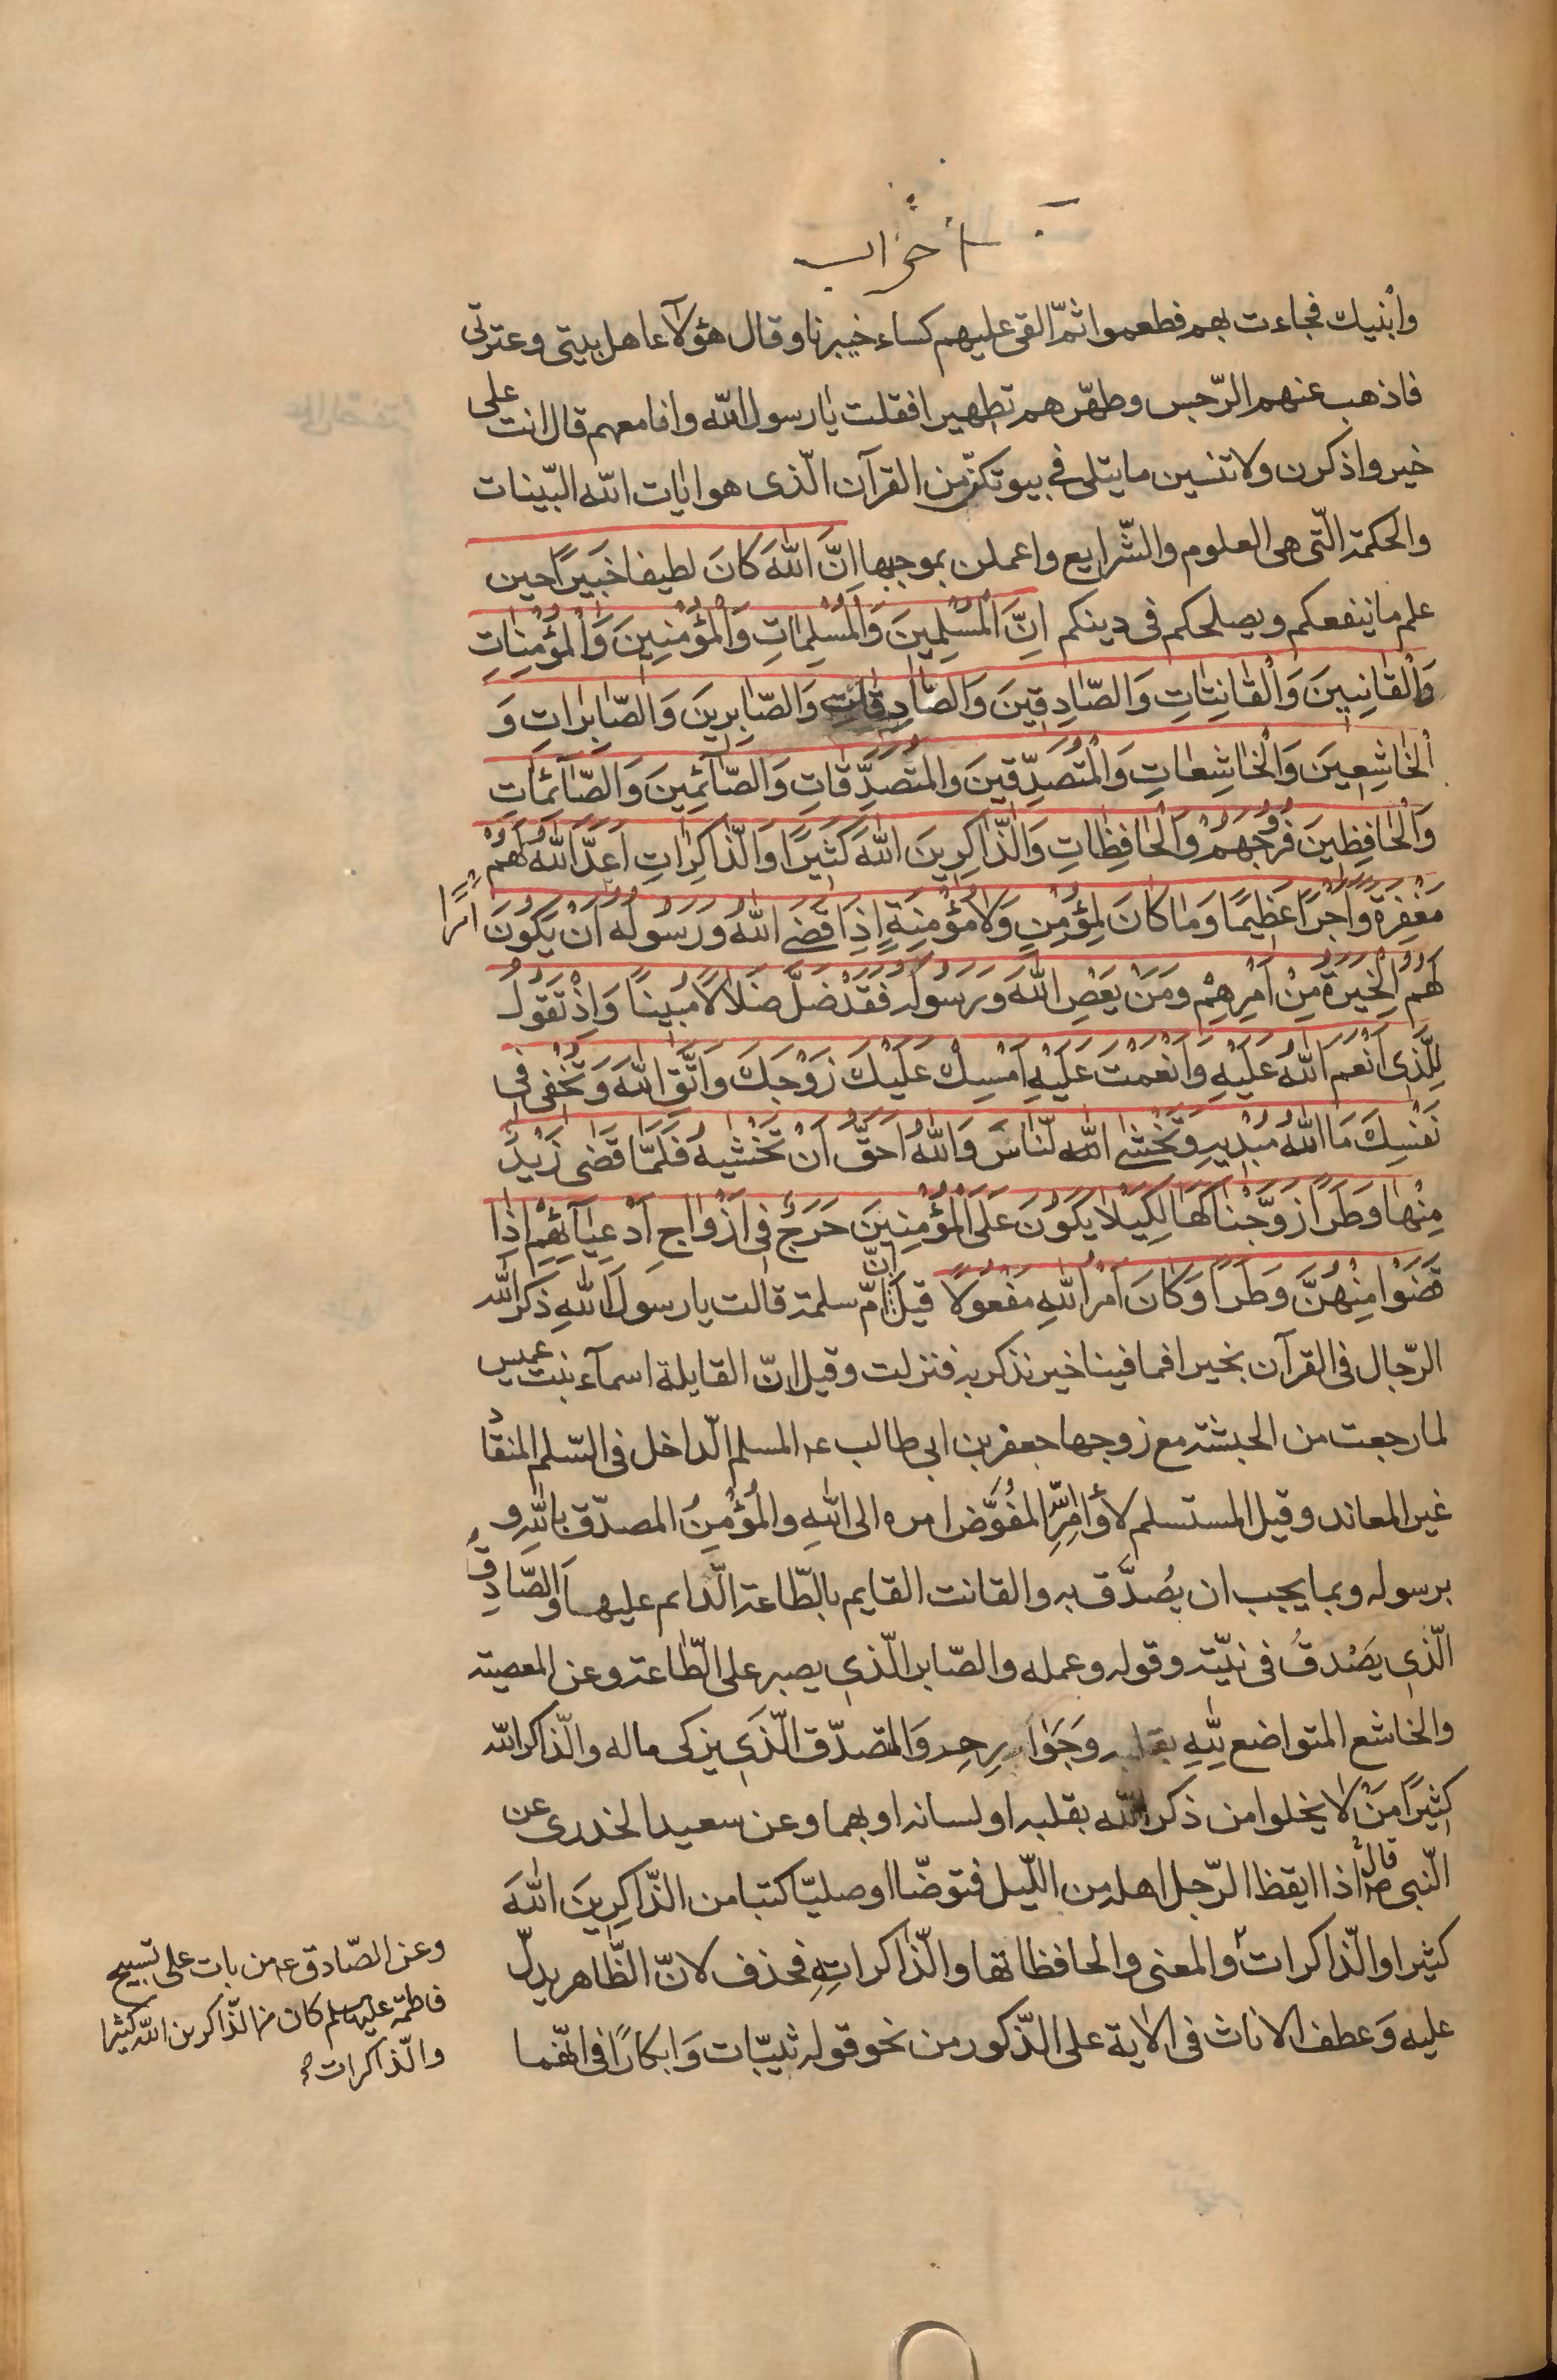 احزاب
وابنيك فجاءت بهم فطعموا ثمّ القى عليهم كساء خيبرنا وقال هؤلآء اهل بيتى وعترتى
فاذهب عنهم الرّجس وطهّرهم تطهيرا فقلت يا رسول الله وانا معهم قال انت على
خير واذكرن ولا تنسين ما يتلى فى بيوتكنّ من القرآن الّذى هو ايات الله البيّنات
والحكمة الّتى هى العلوم والشّرايع واعملن بموجبها اِنَّ اللهَ كانَ لطيفا خَبيرًا حين
علم ما ينفعكم ويصلحكم فى دينكم اِنَّ الْمُسْلِمِينَ وَالْمُسْلِمَاتِ وَالْمُؤْمِنِينَ وَالْمُؤْمِنَاتِ
وَالْقَانِتِينَ وَالْقَانِتَاتِ وَالصَّادِقِينَ وَالصَّادِقَاتِ وَالصَّابِرِينَ وَالصَّابِرَاتِ وَ
الْخَاشِعِينَ وَالْخَاشِعَاتِ وَالْمُتَصَدِّقِينَ وَالْمُتَصَدِّقَاتِ وَالصَّآئِمِينَ وَالصَّآئِمَاتِ
وَالْحَافِظِينَ فُرُوجَهُمْ وَالْحَافِظَاتِ وَالذَّاكِرِينَ اللهَ كَثِيرًا وَالذَّاكِرَاتِ اَعَدَّ اللهُ لَهُمْ
مَغْفِرَةً وَاَجْرًا عَظِيمًا وَمَا كَانَ لِمُؤْمِنٍ وَلَا مُؤْمِنَةٍ اِذَا قَضَى اللهُ وَرَسُولُهُ اَنْ يَكُونَ اَمْرًا
لَهُمُ الْخِيَرَةُ مِنْ اَمْرِهِمْ وَمَنْ يَعْصِ اللهَ وَرَسُولَهُ فَقَدْ ضَلَّ ضَلَالًا مُبِينًا وَاِذْ تَقُولُ
لِلَّذِى اَنْعَمَ اللهُ عَلَيْهِ وَاَنْعَمْتَ عَلَيْهِ اَمْسِكْ عَلَيْكَ زَوْجَكَ وَاتَّقِ اللهَ وَتُخْفِى فِى
نَفْسِكَ مَا اللهُ مُبْدِيهِ وَتَخْشَى النَّاسَ وَاللهُ اَحَقُّ اَنْ تَخْشَيهُ فَلَمَّا قَضَى زَيْدٌ
مِنْهَا وَطَرًا زَوَّجْنَاكَهَا لِكَيْلَا يَكُونَ عَلَى الْمُؤْمِنِينَ حَرَجٌ فِى اَزْوَاجِ اَدْعِيَآئِهِمْ اِذَا
قَضَوْا مِنْهُنَّ وَطَرًا وَكَانَ اَمْرُ اللهِ مَفْعُولًا قيل انّ امّ سلمة قالت يا رسول اللهِ ذكر الله
الرّجال فى القرآن بخير افما فينا خير نذكر به فنزلت وقيل انّ القايلة اسمآء بنت عميس
لما رجعت من الحبشة مع زوجها جعفر بن ابى طالب عـ المسلم الدّاخل فى السّلم المنقادُ
غير المعاند وقيل المستسلم لأوامِرِ المُفَوَّض امره الى اللهِ والمُؤْمِنُ المصدّق باللهِ و
برسوله وبما يجب ان يُصدَّق به والقانت القايم بالطّاعة الدّايم عليها وَالصَّادِقُ
الّذى يَصْدقُ فى نيّته وقوله وعمله والصّابر الّذى يصبر على الطّاعة وعن المعصية
والخاشع المتواضع لِلّهِ بقلبه وَجَوَارِحِه وَالمتصدّق الَّذى يزكى ماله والذّاكر الله
كثِيرًا مَنْ لا يخلوا من ذكر الله بقلبه او لسانه او بهما وعن سعيد الخدرى عن
النّبى صـ قال اذا ايقظ الرّجل اهله من اللّيل فتوضّا اوصليّا كتبا من الذّاكِرِينَ اللهَ
كثيرا والذّاكرات والمعنى والحافظاتها والذّاكراتهِ فحذف لانّ الظّاهر يدلّ
عليه وَعطف الاناث فى الاية على الذّكور من نحو قوله ثيّبات وَابكارًا فى انّهما
وعن الصّادق عـ من بات على تسبيح
فاطمة عليها السلم كان من الذّاكرين الله كثيرا
والذّاكرات